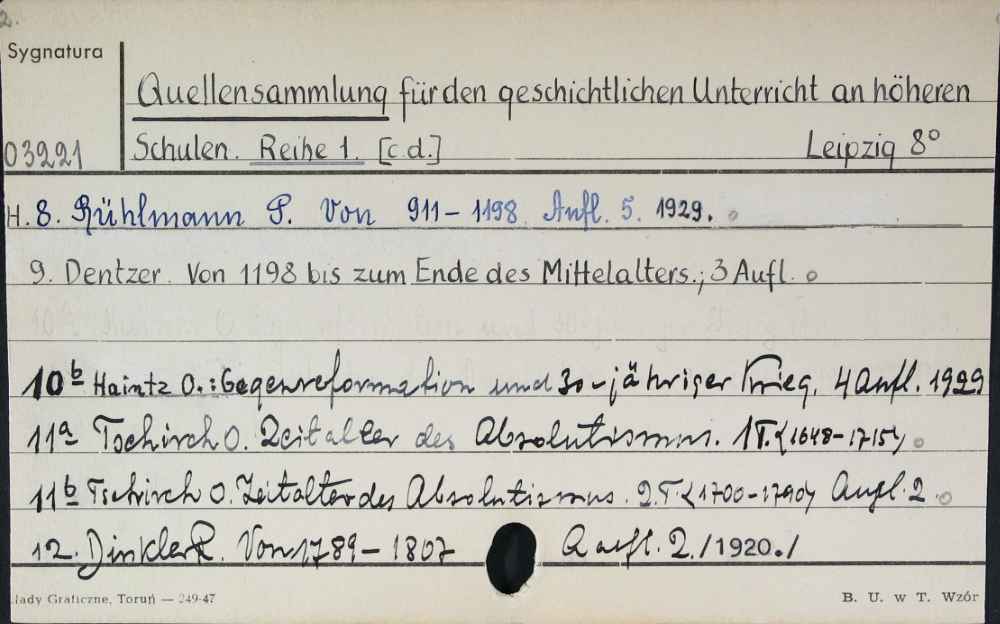 2.
Sygnatura
Quellensammlung für den geschichtlichen Unterricht an höheren
03221 Schulen. Reihe 1. [c.d.] Leipzig 8°
H. 8. Rühlmann P. Von 911 – 1198. Aufl. 5. 1929.
9. Dentzer. Von 1198 bis zum Ende des Mittelalters.; 3 Aufl.
10b Haintz O.: Gegenreformation und 30-jähriger Krieg. 4 Aufl. 1929
11a Tschirch O. Zeitalter des Absolutismus. 1 T. <1648–1715>
11b Tschirch O. Zeitalter des Absolutismus. 2. T. <1700–1790> Aufl. 2
12. Dinkler R. Von 1789 – 1807 Aufl. 2. /1920./
łady Graficzne, Toruń — 249-47 B. U. w T. Wzór